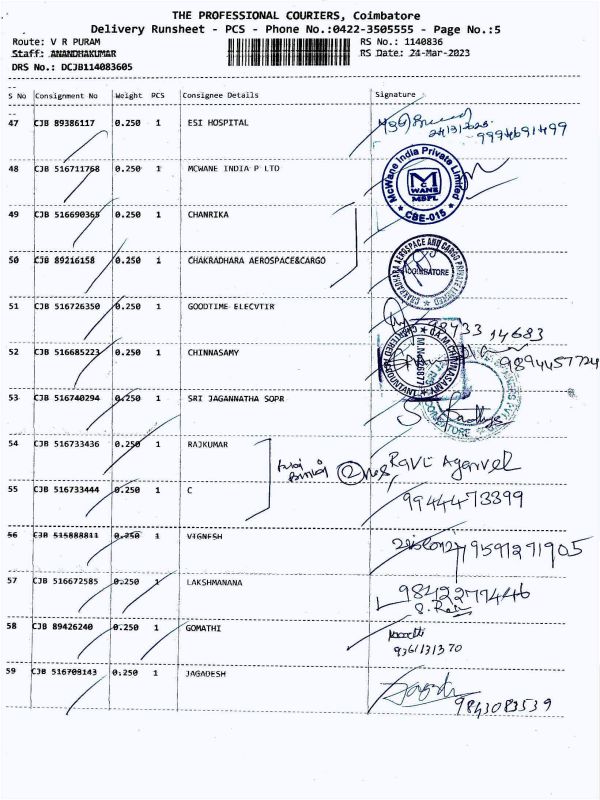 THE PROFESSIONAL COURIERS, Coimbatore
Delivery Runsheet - PCS - Phone No.:0422-3505555 - Page No.:5
Route: V R PURAM RS No.: 1140836
Staff: ANANDHAKUMAR RS Date: 24-Mar-2023
DRS No.: DCJB114083605
S No Consignment No Weight PCS Consignee Details Signature
47 CJB 89386117 0.250 1 ESI HOSPITAL
24/3/2023
9994691499
48 CJB 516711768 0.250 1 MCWANE INDIA P LTD
McWane India Private Limited
M
C
WANE
MBPL
★ CBE-015 ★
49 CJB 516690365 0.250 1 CHANRIKA
50 CJB 89216158 0.250 1 CHAKRADHARA AEROSPACE&CARGO
CHAKRADHARA AEROSPACE AND CARGO PRIVATE LIMITED
COIMBATORE
51 CJB 516726350 0.250 1 GOODTIME ELECVTIR
98433 14683
52 CJB 516685223 0.250 1 CHINNASAMY
CHINNASAMY
CHARTERED ACCOUNTANT
9894457724
53 CJB 516740294 0.250 1 SRI JAGANNATHA SOPR
COIMBATORE
54 CJB 516733436 0.250 1 RAJKUMAR
2 Ravi Agarvel
55 CJB 516733444 0.250 1 C
9944473399
56 CJB 515888811 0.250 1 VIGNESH
9597271905
57 CJB 516672585 0.250 1 LAKSHMANANA
9842277446
58 CJB 89426240 0.250 1 GOMATHI
9361131370
59 CJB 516703143 0.250 1 JAGADESH
Jagadesh
9843083539